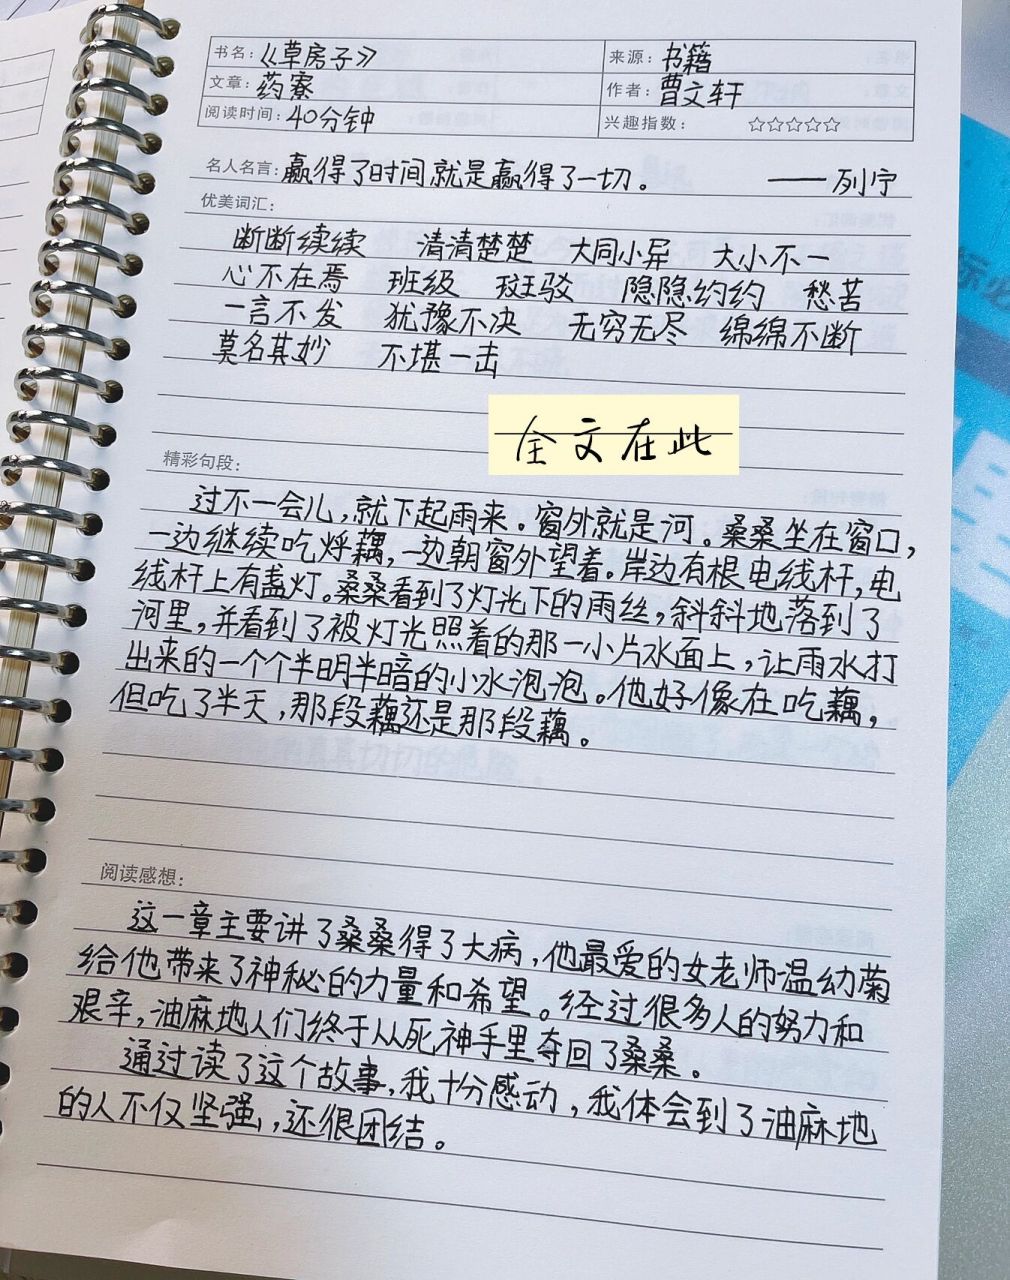 书名：《草房子》 来源：书籍
文章：药寮 作者：曹文轩
阅读时间：40分钟 兴趣指数：☆☆☆☆☆
名人名言：赢得了时间就是赢得了一切。 ——列宁
优美词汇：
断断续续 清清楚楚 大同小异 大小不一
心不在焉 班级 斑驳 隐隐约约 愁苦
一言不发 犹豫不决 无穷无尽 绵绵不断
莫名其妙 不堪一击
全文在此
精彩句段：
过不一会儿，就下起雨来。窗外就是河。桑桑坐在窗口，
一边继续吃烀藕，一边朝窗外望着。岸边有根电线杆，电
线杆上有盏灯。桑桑看到了灯光下的雨丝，斜斜地落到了
河里，并看到了被灯光照着的那一小片水面上，让雨水打
出来的一个个半明半暗的小水泡泡。他好像在吃藕，
但吃了半天，那段藕还是那段藕。
阅读感想：
这一章主要讲了桑桑得了大病，他最爱的女老师温幼菊
给他带来了神秘的力量和希望。经过很多人的努力和
艰辛，油麻地人们终于从死神手里夺回了桑桑。
通过读了这个故事，我十分感动，我体会到了油麻地
的人不仅坚强，还很团结。